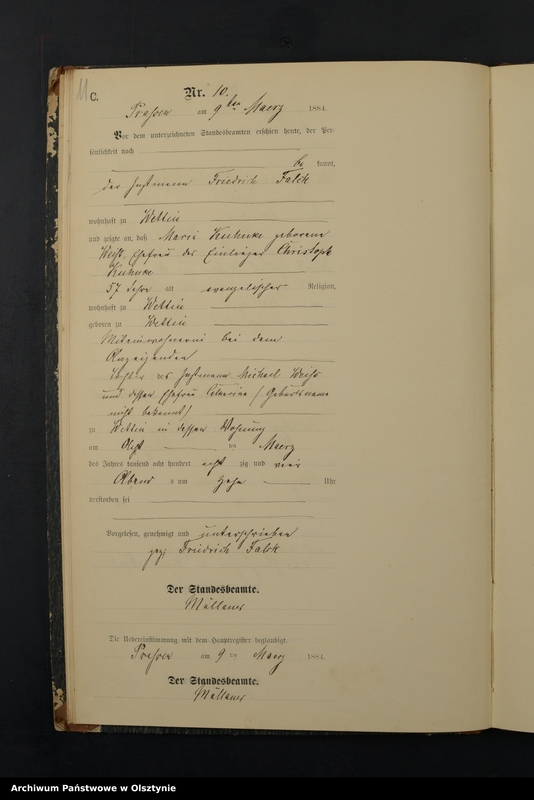 11
C.
Nr. 10.
am 9ten Maerz 1884.
Vor dem unterzeichneten Standesbeamten erschien heute, der Per-
sönlichkeit nach
be kannt,
der Instmann Friedrich Falck
wohnhaft zu Wettin
und zeigte an, daß Marie Kuhnke geborene
Weiß, Ehefrau des Einlieger Christoph
Kuhnke
57 Jahre alt evangelischer Religion,
wohnhaft zu Wettin
geboren zu Wettin
Miteinwohnerin bei dem
Anzeigenden
Tochter des Instmann Michael Weiß
und dessen Ehefrau Catharina (Geburtsname
nicht bekannt)
zu Wettin in dessen Wohnung
am Acht ten Maerz
des Jahres tausend acht hundert acht zig und vier
Abend s um Zehn Uhr
verstorben sei
Vorgelesen, genehmigt und unterschrieben
gez. Friedrich Falck
Der Standesbeamte.
Die Uebereinstimmung mit dem Hauptregister beglaubigt.
am 9 ten Maerz 1884.
Der Standesbeamte.
Archiwum Państwowe w Olsztynie